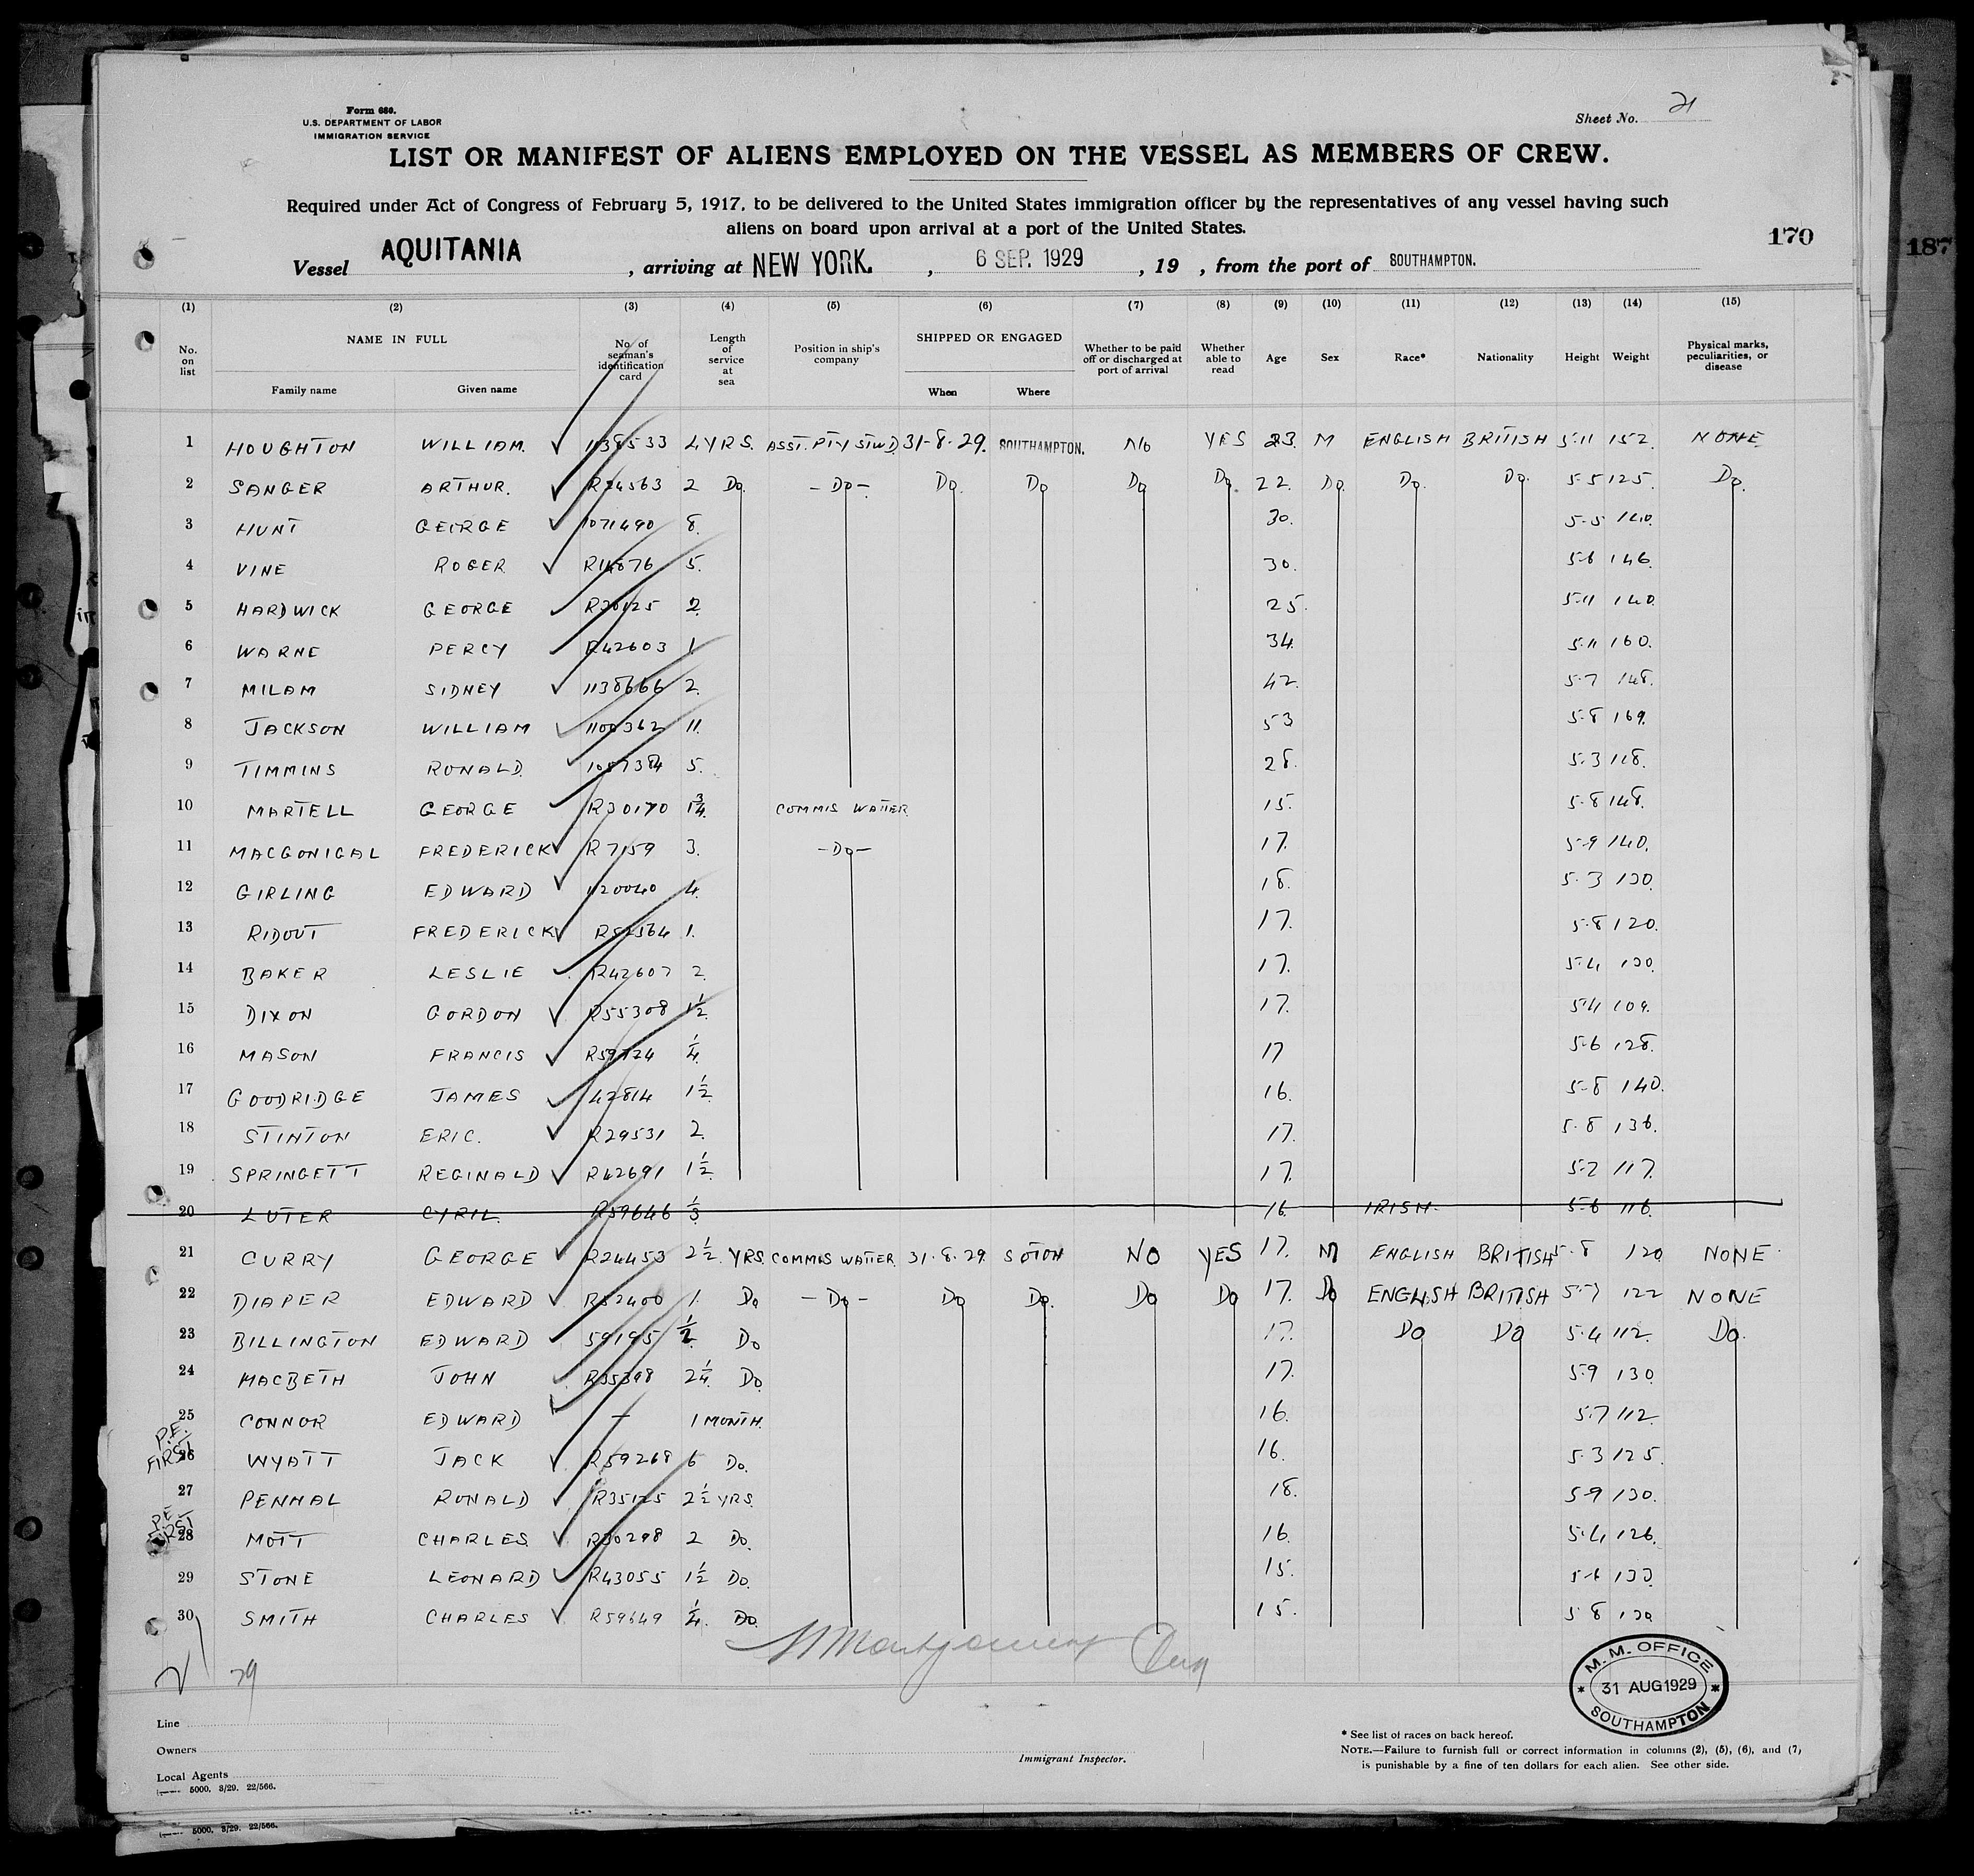 Form 680.
U.S. DEPARTMENT OF LABOR
IMMIGRATION SERVICE
Sheet No. 21
LIST OR MANIFEST OF ALIENS EMPLOYED ON THE VESSEL AS MEMBERS OF CREW.
Required under Act of Congress of February 5, 1917, to be delivered to the United States immigration officer by the representatives of any vessel having such
aliens on board upon arrival at a port of the United States.
170
187
Vessel AQUITANIA, arriving at NEW YORK., 6 SEP. 1929, 19 , from the port of SOUTHAMPTON.
(1) (2) (3) (4) (5) (6) (7) (8) (9) (10) (11) (12) (13) (14) (15)
No. on list NAME IN FULL Family name Given name No. of seaman's identification card Length of service at sea Position in ship's company SHIPPED OR ENGAGED When Where Whether to be paid off or discharged at port of arrival Whether able to read Age Sex Race* Nationality Height Weight Physical marks, peculiarities, or disease
1 HOUGHTON WILLIAM. 1138533 4 YRS. ASST. PTY STWD 31-8-29. SOUTHAMPTON. NO YES 23. M ENGLISH BRITISH 5-11 152. NONE
2 SANGER ARTHUR. R24563 2 Do. -Do- Do. Do Do Do. 22. Do. Do. Do. 5-5 125. Do.
3 HUNT GEORGE 1071490 8. 30. 5-5 140.
4 VINE ROGER R14876 5. 30. 5-6 146.
5 HARDWICK GEORGE R30125 2. 25. 5-11 140.
6 WARNE PERCY R42603 1 34. 5-11 160.
7 MILAM SIDNEY 1138666 2. 42. 5-7 148.
8 JACKSON WILLIAM 1100362 11. 53 5-8 169.
9 TIMMINS RONALD. 1057384 5. 28. 5-3 118.
10 MARTELL GEORGE R30170 1¾. COMMIS WAITER 15. 5-8 148.
11 MACGONIGAL FREDERICK R7159 3. -Do- 17. 5-9 140.
12 GIRLING EDWARD 1120040 4. 18. 5-3 130.
13 RIDOUT FREDERICK R52564 1. 17. 5-8 120.
14 BAKER LESLIE R42607 2. 17. 5-4 130.
15 DIXON GORDON R55308 1½. 17. 5-4 109.
16 MASON FRANCIS R59724 ¼. 17 5-6 128.
17 GOODRIDGE JAMES 42814 1½ 16. 5-8 140.
18 STINTON ERIC. R29531 2. 17. 5-8 136.
19 SPRINGETT REGINALD R42691 1½ 17. 5-7 117.
20 LUTER CYRIL. R59646 ⅓ 16. IRISH. 5-6 116.
21 CURRY GEORGE R24453 2½. YRS. COMMIS WAITER. 31-8-29. SOTON NO YES 17. M ENGLISH BRITISH 5-8 120 NONE
22 DIAPER EDWARD R52400 1. Do -Do- Do Do. Do Do 17. Do ENGLISH BRITISH 5-7 122 NONE
23 BILLINGTON EDWARD 59195 ½ Do 17. Do Do 5-4 112. Do.
24 MACBETH JOHN R35398 2¼. Do. 17. 5-9 130
25 CONNOR EDWARD - 1 MONTH. 16. 5-7 112.
P.E. FIRST
26 WYATT JACK R59268 6 Do. 16. 5-3 125.
27 PENHAL RONALD R35125 2½ YRS. 18. 5-9 130.
P.E. FIRST
28 MOTT CHARLES. R30298 2 Do. 16. 5-4 126.
29 STONE LEONARD R43055 1½ Do. 15. 5-6 133
30 SMITH CHARLES R59649 ¼. Do. 15. 5-8 130
29
M. M. OFFICE
31 AUG 1929
SOUTHAMPTON
Line
Owners
Local Agents
Immigrant Inspector.
* See list of races on back hereof.
NOTE.—Failure to furnish full or correct information in columns (2), (5), (6), and (7),
is punishable by a fine of ten dollars for each alien. See other side.
5000. 3/29. 22/566.
5000. 3/29. 22/566.